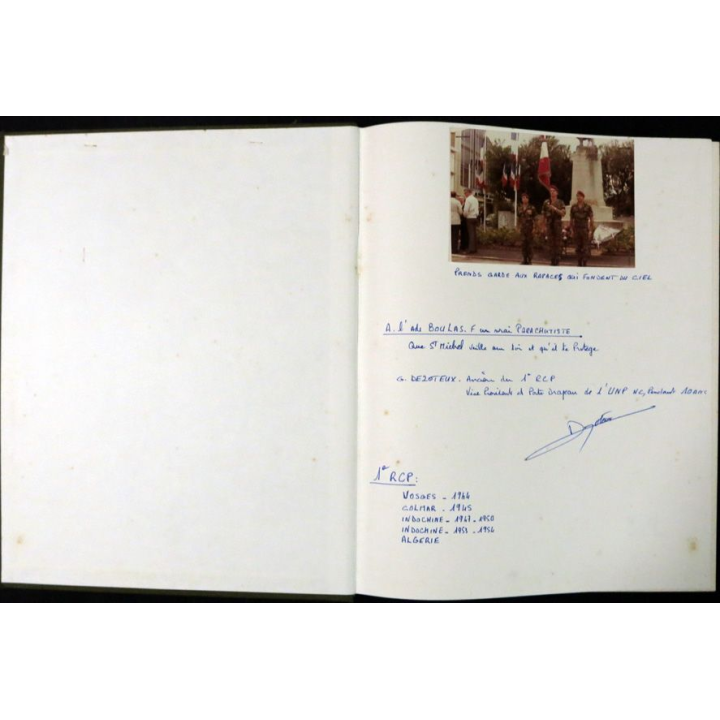 PRENDS GARDE AUX RAPACES QUI FONDENT DU CIEL
A. l'adc BOULAS. F un vrai PARACHUTISTE
Que St Michel veille sur toi et qu'il te Protège
G. DEZOTEUX. Ancien du 1er RCP
Vice Président et Porte Drapeau de l'UNP N.C, Pendant 10 ans
1er RCP:
VOSGES - 1944
COLMAR - 1945
INDOCHINE - 1947 - 1950
INDOCHINE - 1953 - 1954
ALGERIE